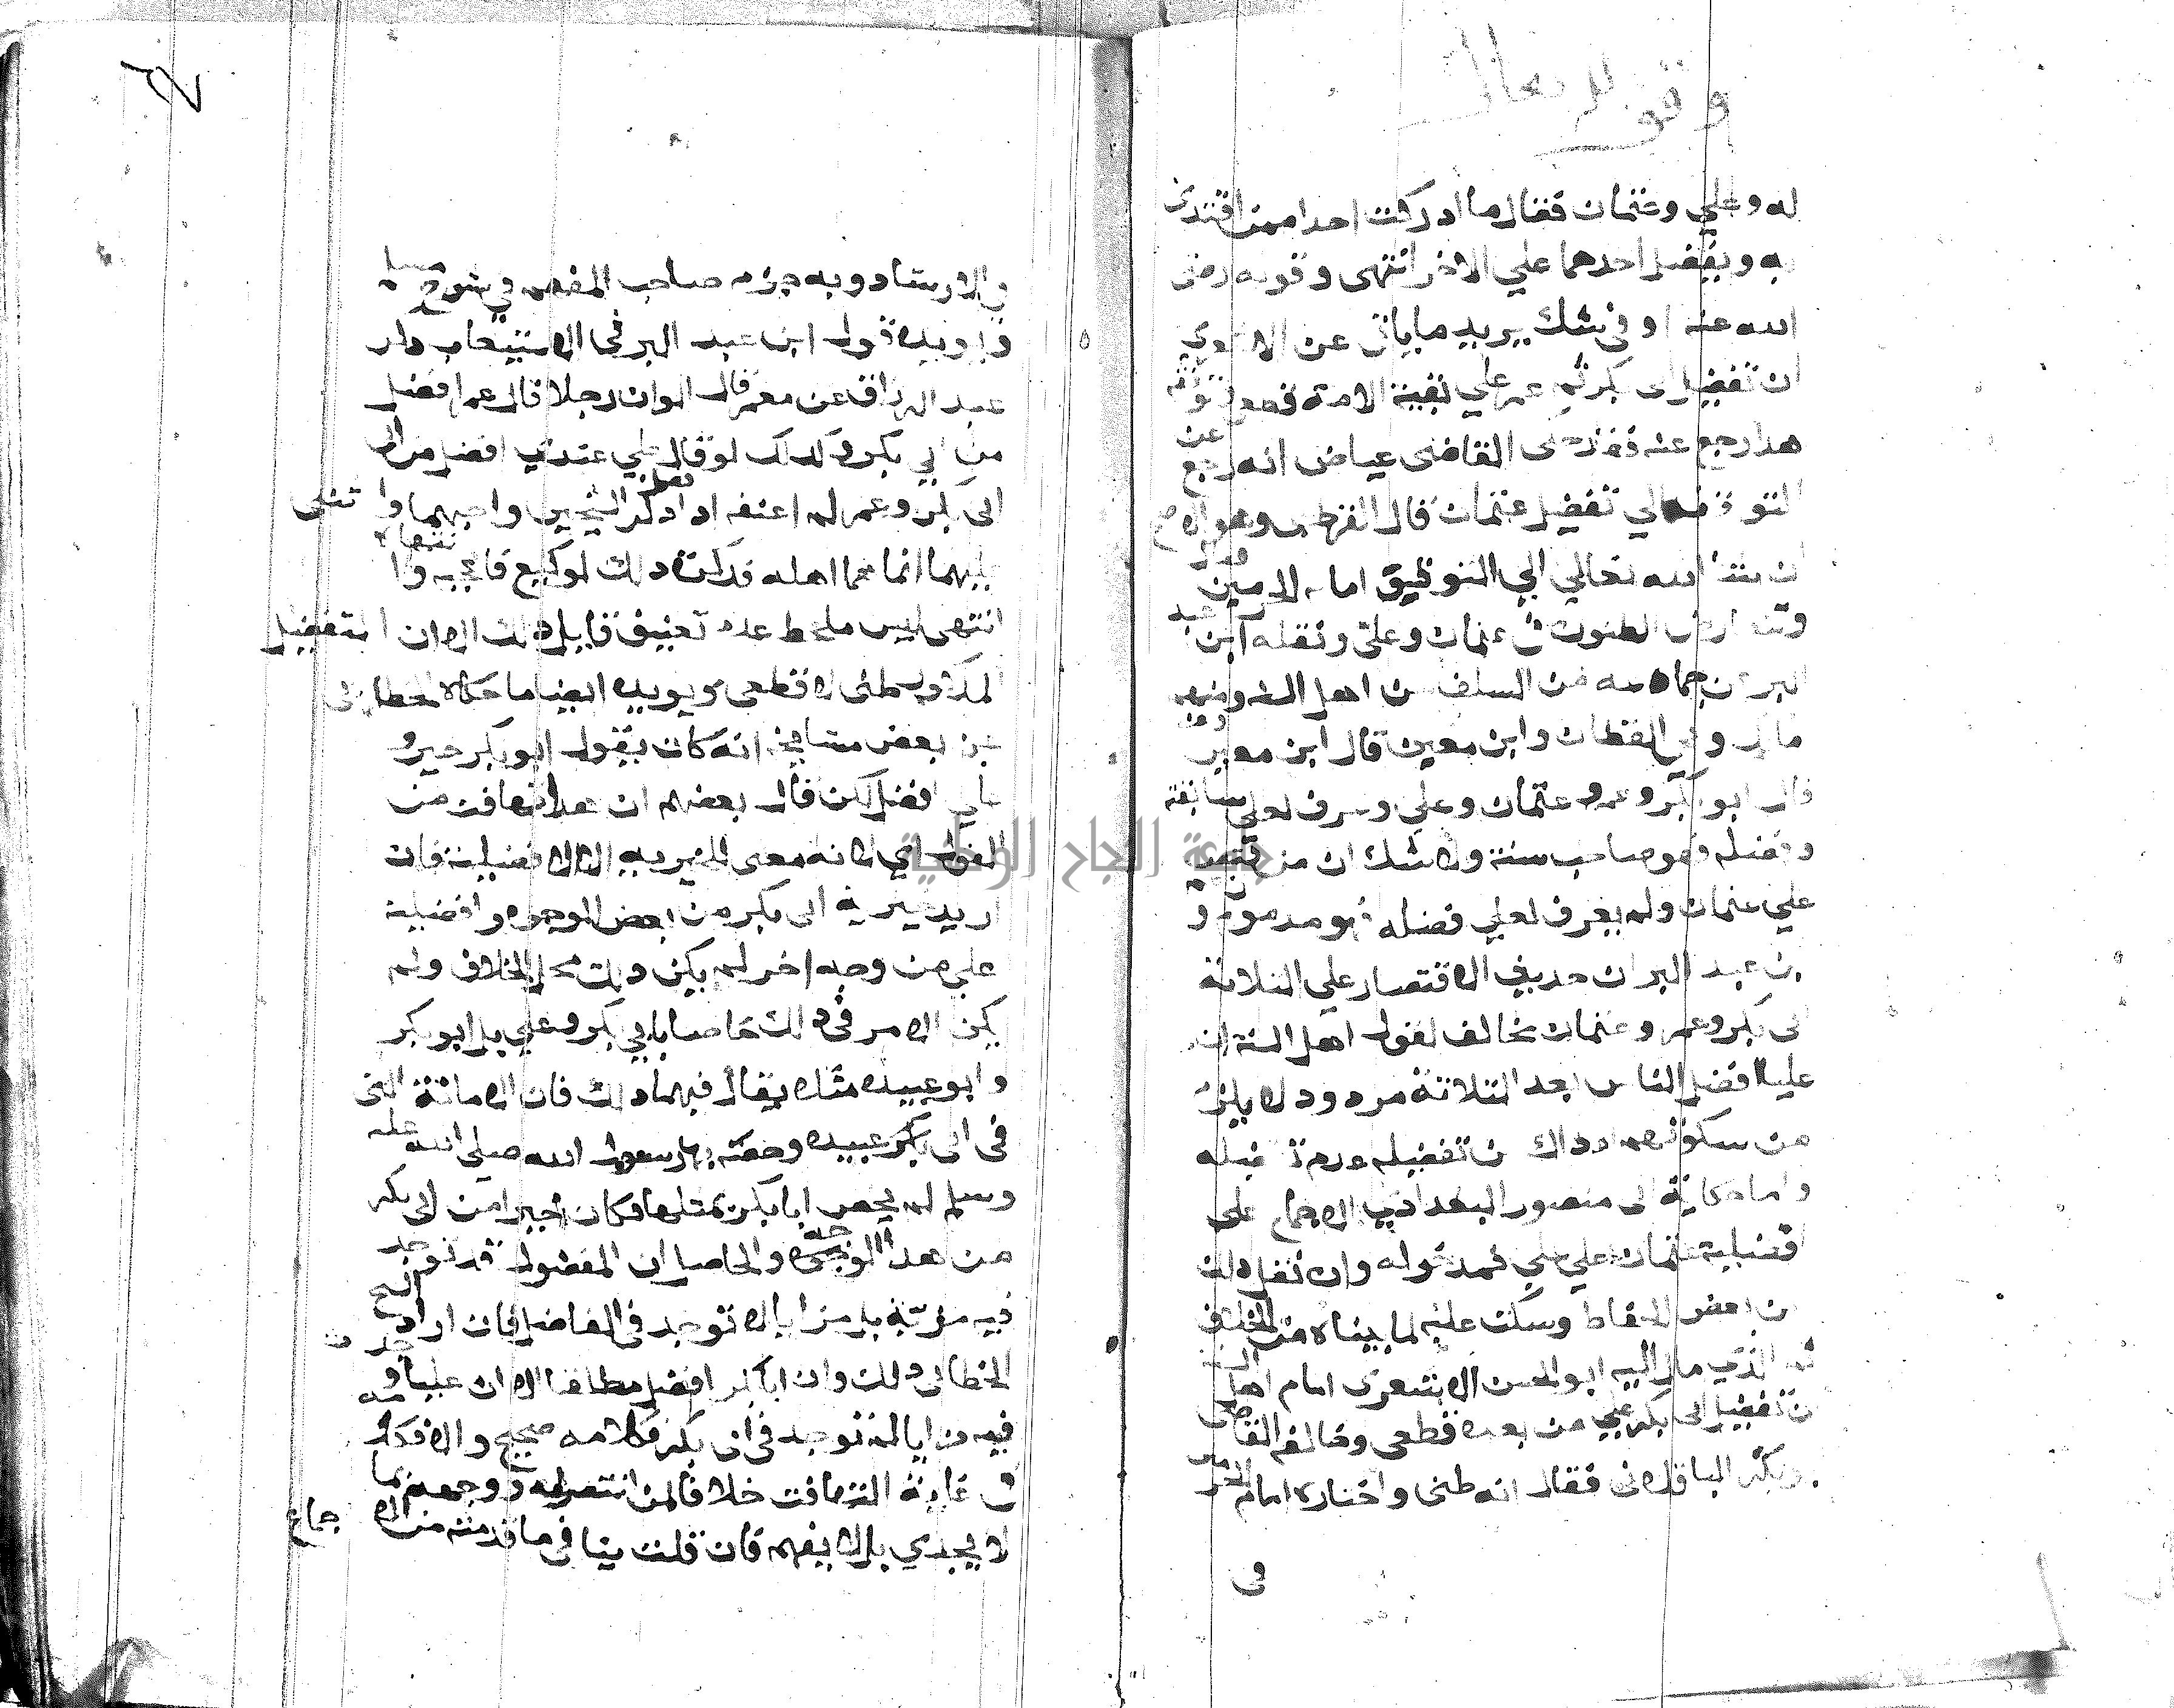 وقف لله تعالى
له وعلي وعثمان فقال ما ادركت احدا ممن اقتدى
به ويفضل احدهما علي الاخر انتهى وقوله رضى
الله عنه او في شك يريد ما ياتي عن الاشعري
ان تفضيل ابى بكر ثم عمر علي بقية الامة قطعي وتوقفه
هذا رجع عنه فقد حكى القاضى عياض انه رجع عن
التوقف الي تفضيل عثمان قال القرطبى وهو الاصح
ان شا الله تعالي الي التوقف امام الحرمين فقال
وتتعارض الظنون في عثمان وعلي ونقله ابن عبد
البر عن جماعة من السلف من اهل السنة ومنهم
مالك ويحي القطان وابن معين قال ابن معين ومن
قال ابو بكر وعمر وعثمان وعلي وعرف لعلي سابقته
وفضله فهو صاحب سنة ولا شك ان من اقتصر
علي عثمان ولم يعرف لعلي فضله فهو مذموم و
بن عبد البر ان حديث الاقتصار علي الثلاثة
ابى بكر وعمر وعثمان مخالف لقول اهل السنة ان
عليا افضل الناس بعد الثلاثة مردود لا يلزم
من سكوتهم اذ ذاك عن تفضيله عدم تفضيله
واما حكاية ابى منصور البغدادي الاجماع على
افضلية عثمان علي علي فمدخوله وان نقل ذلك
عن بعض الحفاظ وسكت عليه لما بيناه من الخلاف
ثم الذي مال اليه ابو الحسن الاشعرى امام اهل السنة
ان تفضيل ابى بكر علي من بعده قطعى وخالفه القاضى
ابو بكر الباقلانى فقال انه ظنى واختاره امام الحرمين
فى
في الارشاد وبه جزم صاحب المفهم في شرح مسلم
ويؤيده قول ابن عبد البر فى الاستيعاب ذكر
عبد الرزاق عن معمر قال لو ان رجلا قال عمر افضل
من ابي بكر وكذلك لو قال علي عندي افضل من
ابى بكر وعمر لم اعنفه اذا ذكر فضل الشيخين واحبهما واثنى
عليهما بما هما اهله فذكرت ذلك لوكيع فاعجبه واشتهاه
انتهى ليس ملحظ عدم تعنيف قايل ذلك الا ان التفضيل
المذكور ظنى لا قطعى ويويده ايضا ما حكاه الخطابى
عن بعض مشايخه انه كان يقول ابو بكر خير و
علي افضل لكن قال بعضهم ان هذا تهافت من
القول اي لانه معنى للخيرية الا الافضلية فان
اريد خيرية ابى بكر من بعض الوجوه وافضلية
علي من وجه اخر لم يكن ذلك محل الخلاف ولم
يكن الامر فى ذلك خاصا بابي بكر وعلي بل ابو بكر
وابو عبيده مثلا يقال فيهما ذلك فان الامانة التى
فى ابى عبيده وخصه بها رسول الله صلي الله عليه
وسلم لم يخص ابا بكر بمثلها فكان خيرا من ابى بكر
من هذا الوجه والحاصل ان المفضول قد توجد
فيه مزية بل مزايا لا توجد فى الفاضل فان اراد الشيخ
الخطابى ذلك وان ابا بكر افضل مطلقا الا ان عليا وجد
فيه مزايا لم توجد فى ابى بكر فكلامه صحيح والا فكلامه
فى غاية التهافت خلافا لمن انتصر له ووجهه بما
لا يجدي بل لا يفهم فان قلت ينافى ما قدمته من الاجماع
جامعة النجاح الوطنية